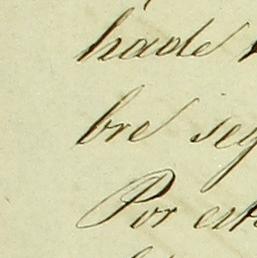 hade
bre seg
Por est